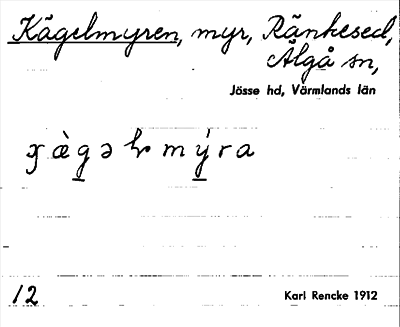 Kägelmyren, myr, Ränkesed,
Älgå sn,
Jösse hd, Värmlands län
12
Karl Rencke 1912